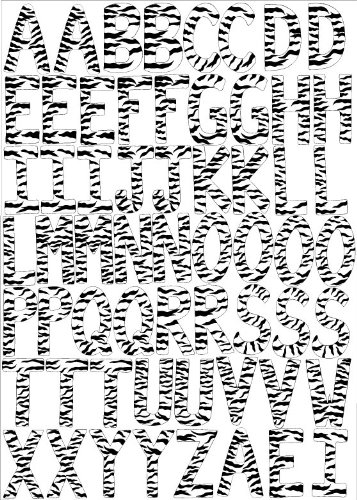 AABBCCDD
EEEFFGGHH
IIIJJKKLL
LMMNNOOOO
PPQQRRSSS
TTTUUVVVW
XXYYZAEI